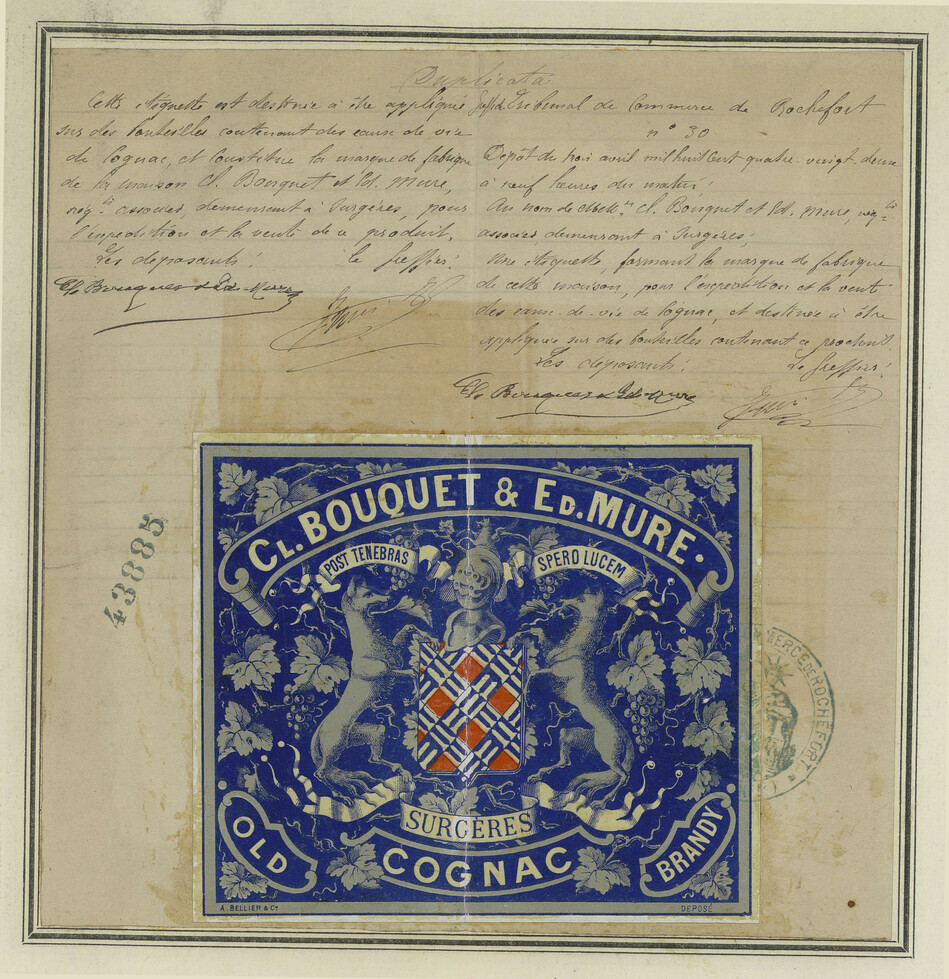 Duplicata
Cette étiquette est destinée à être appliquée
sur des bouteilles contenant des eaux de vie
de Cognac, et constitue la marque de fabrique
de la maison Cl. Bouquet et Ed. Mure,
nég.ts associés, demeurant à Surgères, pour
l'expédition et la vente de ce produit.
Les déposants: Le Greffier:
Cl. Bouquet & Ed. Mure
Tribunal de Commerce de Rochefort
n° 30
Dépôt du trois avril mil huit cent quatre vingt deux
à neuf heures du matin:
Au nom de Cl. Bouquet et Ed. Mure, nég.ts
associés, demeurant à Surgères;
Une étiquette, formant la marque de fabrique
de cette maison, pour l'expédition et la vente
des eaux-de-vie de Cognac, et destinée à être
appliquée sur des bouteilles contenant ce produit.
Les déposants: Le Greffier:
Cl. Bouquet & Ed. Mure
43885
CL. BOUQUET & ED. MURE.
POST TENEBRAS SPERO LUCEM
SURGÈRES
OLD COGNAC BRANDY
A. BELLIER & Cie DEPOSÉ
MERCE DE ROCHEFORT